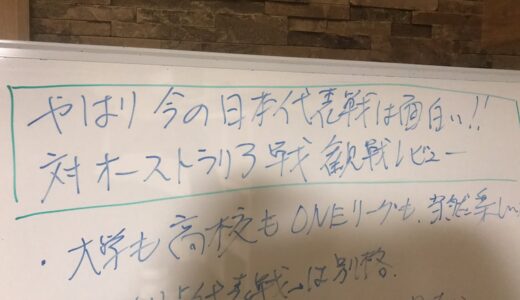 やはり 今の日本代表戦は面白い!!
対オーストラリア戦 観戦レビュー
・大学も高校もONEリーグも、当然楽しい
代表戦は別格.